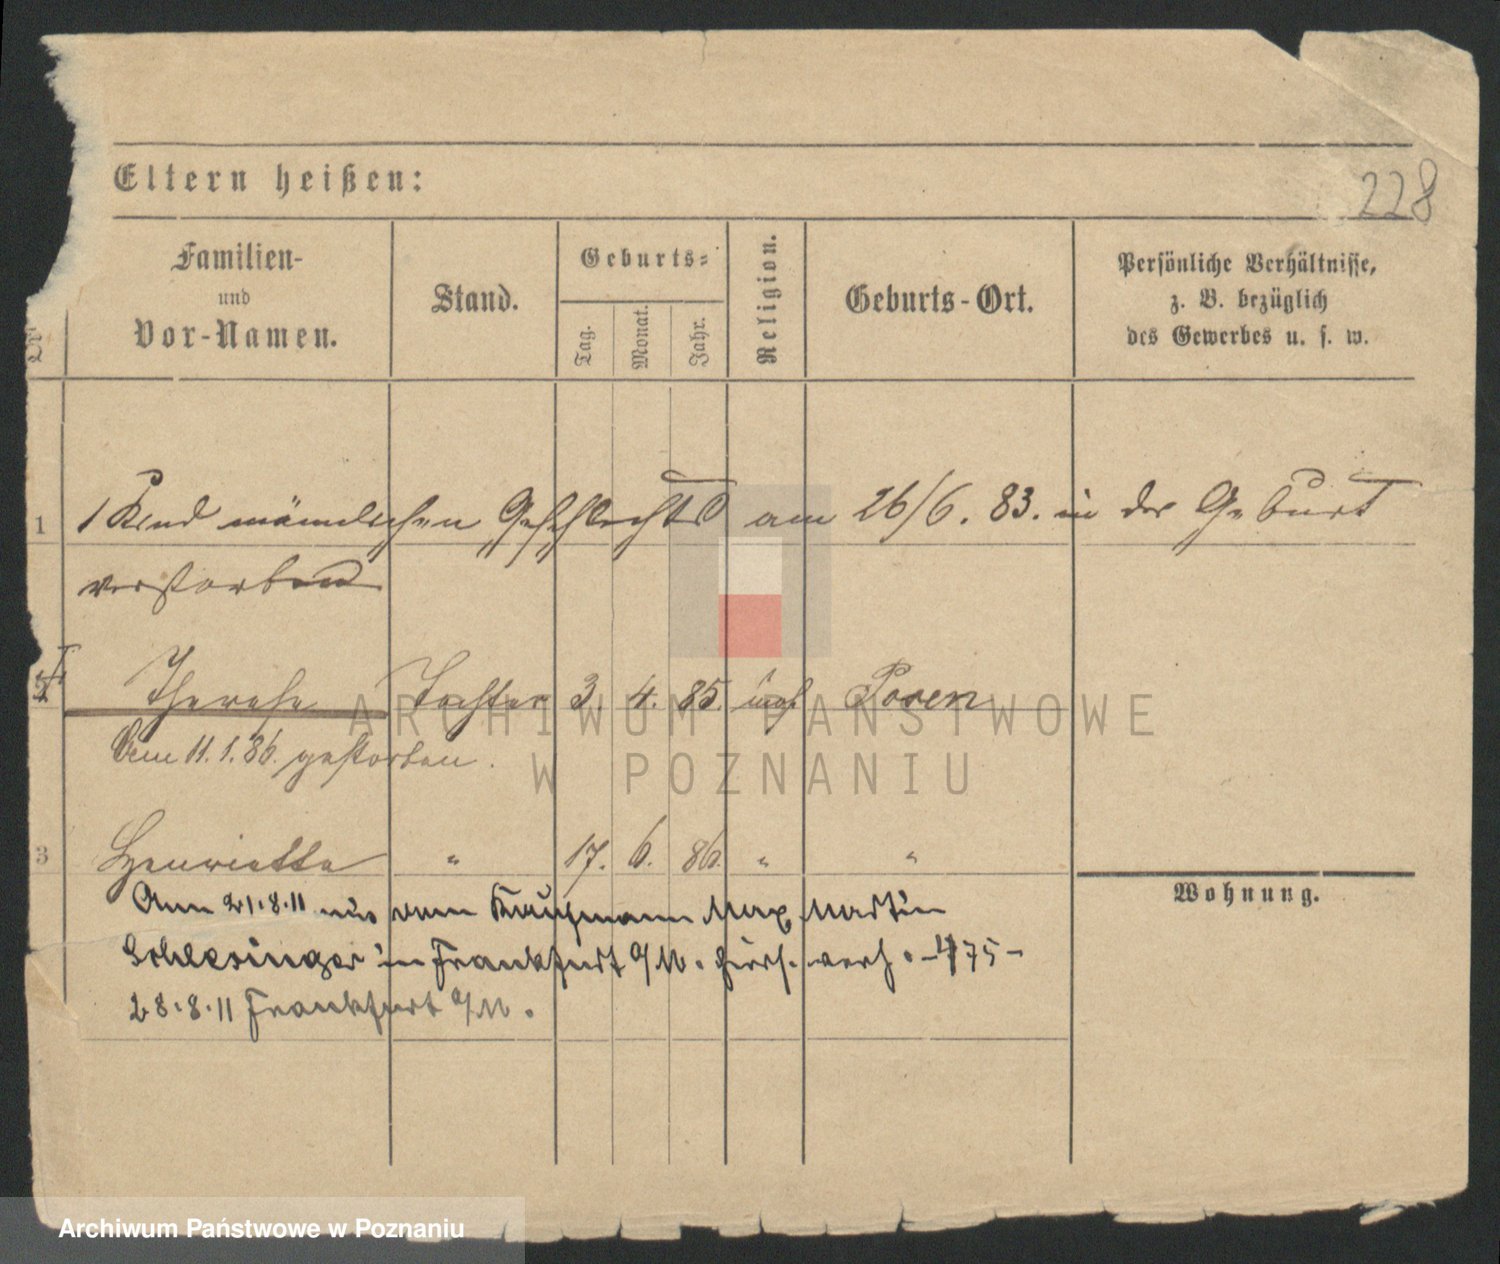 Eltern heißen:
228
Nr.
Familien-
und
Vor-Namen.
Stand.
Geburts-
Tag.
Monat.
Jahr.
Religion.
Geburts-Ort.
Persönliche Verhältnisse,
z. B. bezüglich
des Gewerbes u. s. w.
1 1 Kind männlichen Geschlechts am 26/6. 83. in der Geburt
verstorben
Therese Tochter 3. 4. 85. mos Posen
Am 11.1.86. gestorben.
3 Henriette " 17. 6. 86. " "
Wohnung.
Am 21.8.11 mit dem Kaufmann Max Martin
Schlesinger in Frankfurt a/M. hier verh. -475-
28.8.11 Frankfurt a/M.
ARCHIWUM PAŃSTWOWE
W POZNANIU
Archiwum Państwowe w Poznaniu